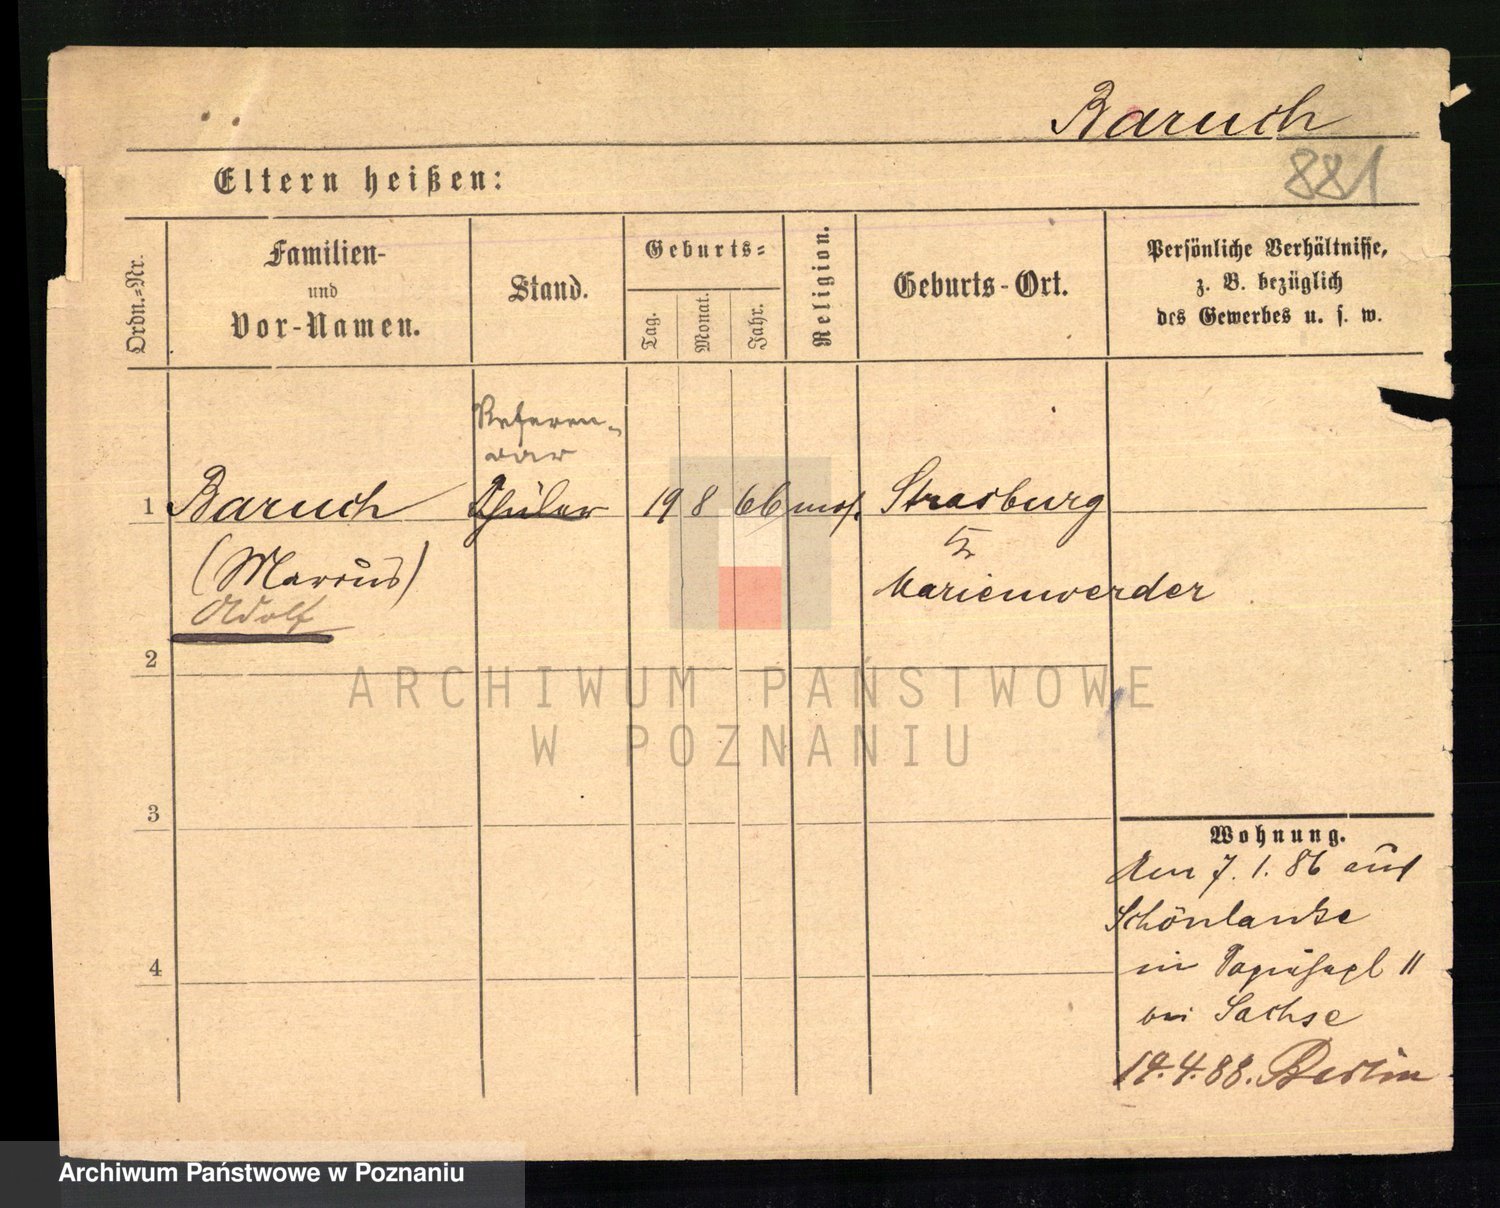 Baruch
881
Eltern heißen:
Ordn.-Nr.
Familien-
und
Vor-Namen.
Stand.
Geburts-
Tag.
Monat.
Jahr.
Religion.
Geburts-Ort.
Persönliche Verhältnisse,
z. B. bezüglich
des Gewerbes u. s. w.
Referen-
dar
1 Baruch Schüler 19 8 66 mos. Strasburg
(Marcus)
Marienwerder
Adolf
2
ARCHIWUM PAŃSTWOWE
W POZNANIU
3
Wohnung.
Am 7. 1. 86 aus
Schönlanke
in 11
4
bei Sachse
19.4.88. Berlin
Archiwum Państwowe w Poznaniu